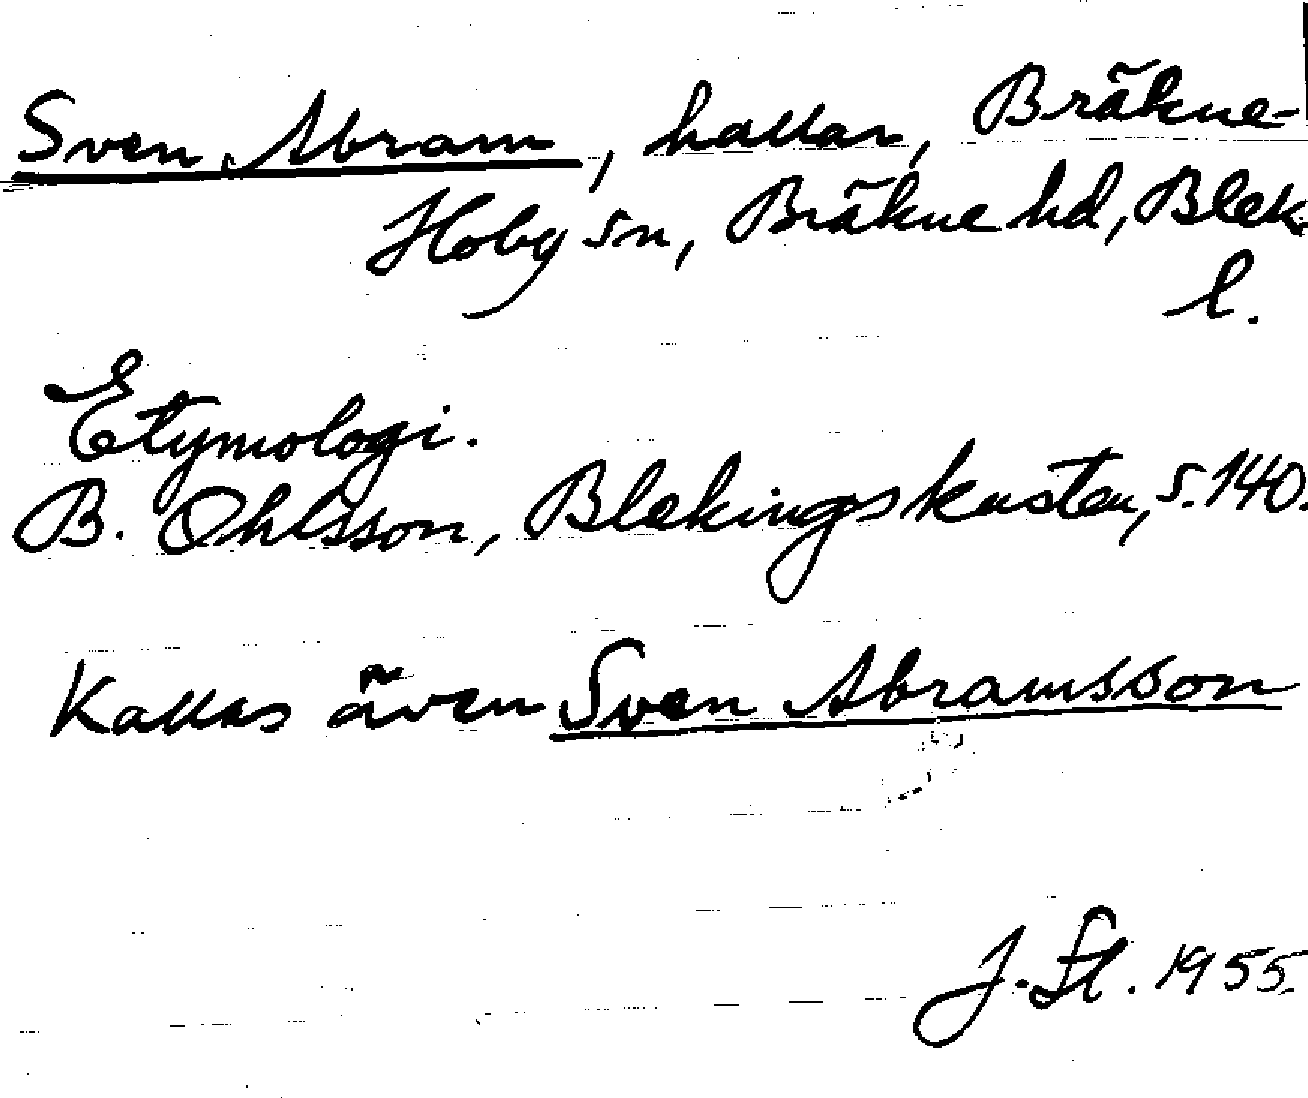 Sven Abram, hallar, Bräkne-
Hoby sn, Bräkne hd, Blek.
l.
Etymologi.
B. Ohlsson, Blekingskusten, s. 140.
Kallas även Sven Abramsson
J. St. 1955.